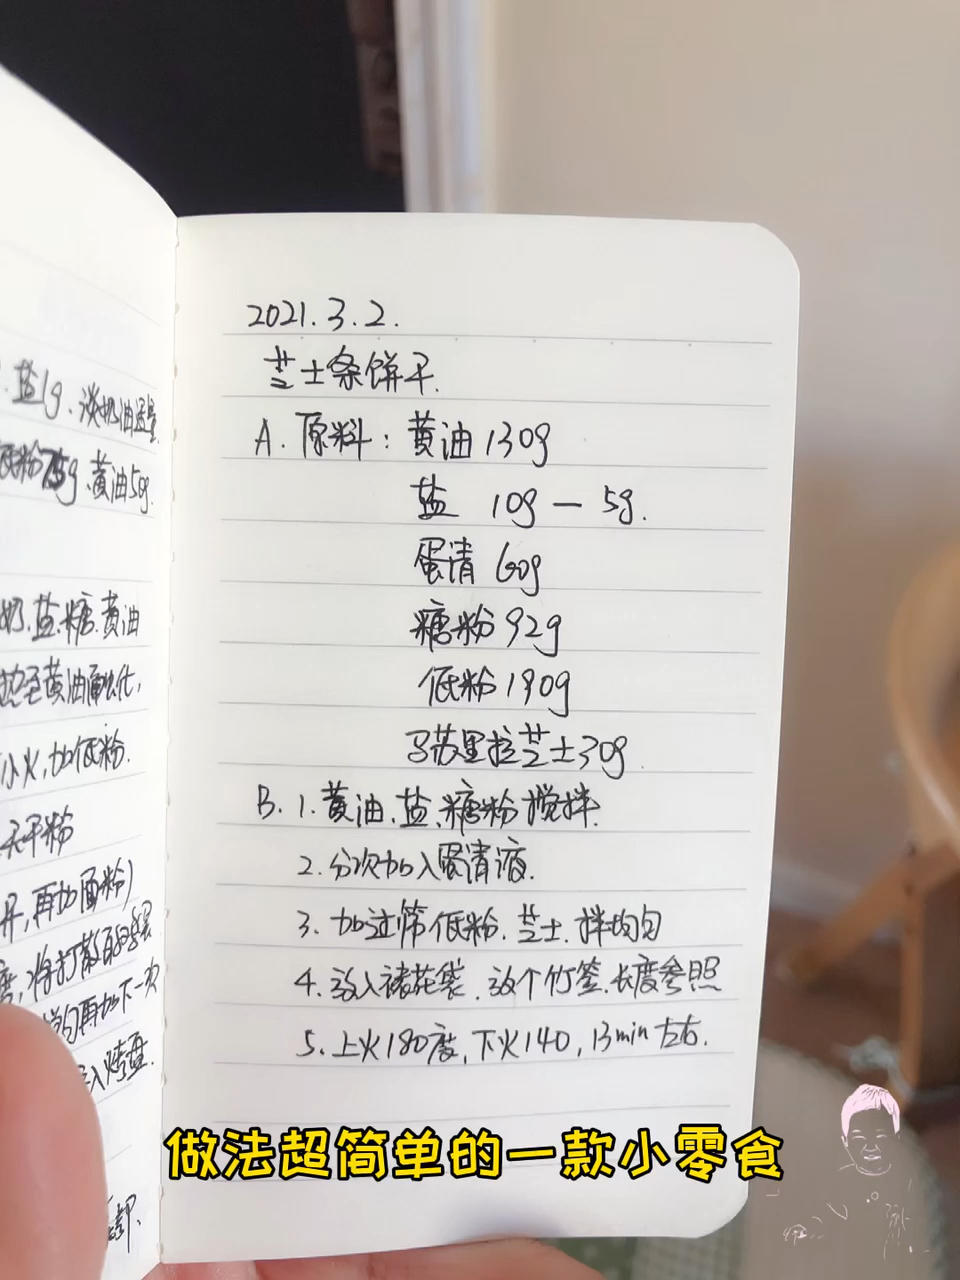 盐1g、淡奶油适量
低粉75g、黄油50g.
奶.盐.糖.黄油
热至黄油融化,
小火,加低粉.
无干粉
开,再加面粉)
匀再加下一次
入烤盘.
2021.3.2.
芝士条饼干.
A.原料:黄油130g
盐 10g — 5g.
蛋清 60g
糖粉 92g
低粉 190g
马苏里拉芝士30g
B.1.黄油.盐.糖粉搅拌.
2.分次加入蛋清液.
3.加过筛低粉.芝士.拌均匀
4.放入裱花袋.放个竹签.长度参照
5.上火180度,下火140,13min左右.
做法超简单的一款小零食